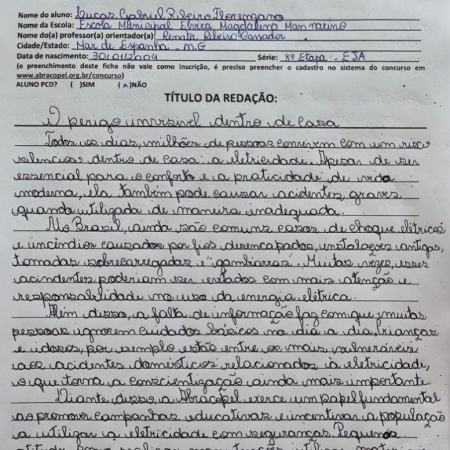 Nome do aluno: Lucas Gabriel Ribeiro Florenzano
Nome da Escola: Escola Municipal Elvira Magdalena Mannarino
Nome do(a) professor(a) orientador(a): Renata Ribeiro Cansador
Cidade/Estado: Mar de Espanha - M.G
Data de nascimento: 30/01/2004 Série: 8ª Etapa - EJA
(o preenchimento deste ficha não vale como inscrição, é preciso preencher o cadastro no sistema do concurso em
www.abracopel.org.br/concurso)
ALUNO PCD? ( )SIM (x)NÃO
TÍTULO DA REDAÇÃO:
O perigo invisível dentro de casa
Todos os dias, milhões de pessoas convivem com um risco
silencioso dentro de casa: a eletricidade. Apesar de ser
essencial para o conforto e a praticidade de vida
moderna, ela também pode causar acidentes graves
quando utilizada de maneira inadequada.
No Brasil, ainda são comuns casos de choque elétricos
e incêndios causados por fios desencapados, instalações antigas,
tomadas sobrecarregadas e "gambiarras". Muitas vezes, esses
acindentes poderiam ser evitados com mais atenção e
responsabilidade no uso da energia elétrica.
Além disso, a falta de informação faz com que muitas
pessoas ignorem cuidados básicos no dia a dia. Crianças
e idosos, por exemplo estão entre os mais vulneráveis
aos acidentes domésticos relacionados à eletricidade,
o que torna a conscientização ainda mais importante.
Diante disso, a Abracopel exerce um papel fundamental
ao promover campanhas educativas e incentivar a população
a utilizar a eletricidade com seguranças. Pequenas